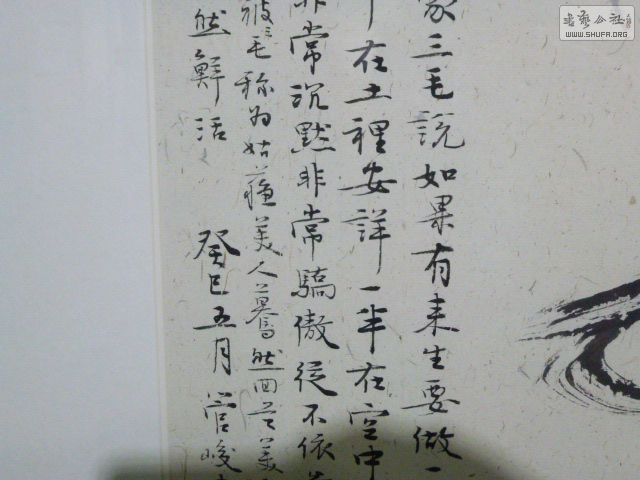 家三毛説如果有来生要做一
在土裡安詳一半在空中
非常沉默非常驕傲從不依
被三毛称为姑蘓美人蓦然回
然鮮活 癸巳五月 管峻
書藝公社
WWW.SHUFA.ORG